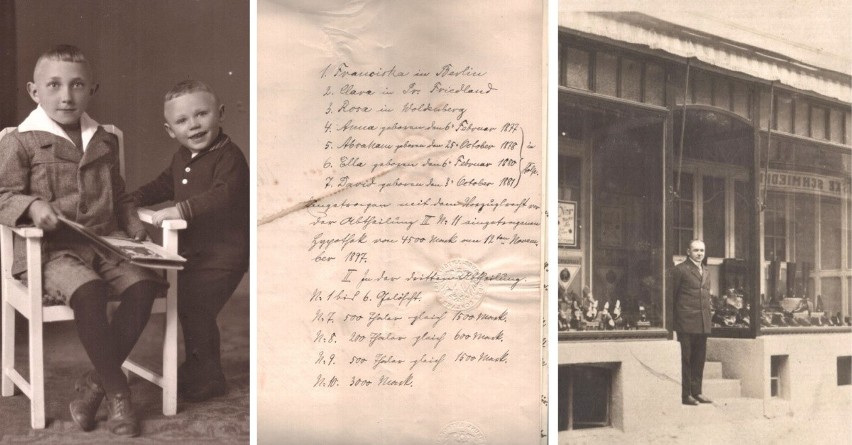 1. Franciska in Berlin
2. Clara in Pr. Friedland
3. Rosa in Woldenberg
4. Anna geboren den 6t Februar 1877
5. Abraham geboren den 25t October 1878
6. Ella geboren den 6t Februar 1880
7. David geboren den 3t October 1881
in
Eingetragen mit dem Vorzugsrecht vor
der Abtheilung III No 11 eingetragenen
Hypothek von 4500 Mark am 12ten Novem
ber 1897.
II in der dritten Abtheilung.
No 1 bis 6. Gelöscht.
No 7. 500 Thaler gleich 1500 Mark.
No 8. 200 Thaler gleich 600 Mark.
No 9. 500 Thaler gleich 1500 Mark.
No 10. 3000 Mark.
SCHMIED